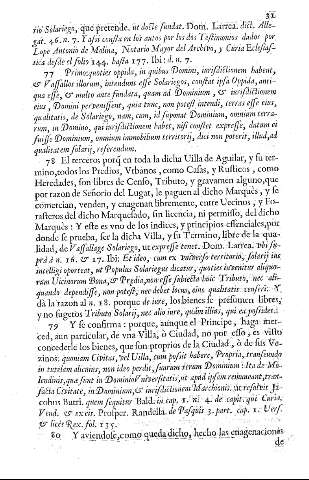 32
tio Solariego, que pretende. ut docte fundat. Dom. Larrea. dict. Allegat. 46. n. 7. Y assi consta en los autos por los dos Testimonios dados por
Lope Antonio de Molina, Notario Mayor del Archivo, y Curia Eclesiastica desde el folio 144. hasta 177. Ibi: d. n. 7.
77 Primo: quoties oppida, in quibus Domini, iurisdictionem habent,
& Vassallos illorum, intendunt esse Solariegos, constat ipsa Oppida, antiqua esse, & multo ante fundata, quam ad Dominium, & iurisdictionem
eius, Domini pervenissent, quia tunc, non potest intendi, terras esse eius,
qualitatis, de Solariego, nam, cum, id suponat Dominium, omnium terrarum, in Domino, qui iurisdictionem habet, nisi constet expresse, datum ei
fuisse Dominium, omnium immobilium territorij, dici non poterit, illud, ad
qualitatem solarij, referendum.
78 El tercero: porq̃ en toda la dicha Uilla de Aguilar, y su termino, todos los Predios, Vrbanos, como Casas, y Rusticos, como
Heredades, son libres de Censo, Tributo, y gravamen alguno, que
por razon de Señorio del Lugar, le paguen al dicho Marquès, y se
comercian, venden, y enagenan libremente, entre Uecinos, y Forasteros del dicho Marquesado, sin licencia, ni permisso, del dicho
Marquès: Y este es vno de los indices, y principios essenciales, por
donde se prueba, ser la dicha Villa, y su Termino, libre de la qualidad, de Vassallage Solariego, ut expresse tenet. Dom. Larrea. vbi suprà d. n. 16. & 17. Ibi: Et ideo, cum ex vniverso territorio, solarij ius
intelligi oporteat, ut Populus Solariegus dicatur, quoties intenitur aliquorum Vicinorum Bona, & Predia, non esse subiecta huic Tributo, nec aliquando dependisse, non potest, nec debet locus, eius qualitatis censeri. Y
dà la razon al n. 18. porque de iure, los bienes se presumen libres,
y no sugetos Tributo Solarij, nec alio iure, quàm illius, qui ea possidet:
79 Y se confirma: porque, aunque el Principe, haga merced, en particular, de vna Villa, ò Ciudad, no por esso, es visto
concederle los bienes, que son proprios de la Ciudad, ò de sus Vezinos: quoniam Civitas, vel Uilla, cum possit habere, Propria, transeundo
in tutelam alicuius, non ideo perdit, suarum rerum Dominium: Ita de Molendinis, quæ sunt in Dominio Vniversitatis, ut apud ipsam remaneant, transfacta Civitate, in Dominium, & iurisdictionem Marchionis. ut resolvit Jacobus Butri. quem sequitur Bald. in cap. 1. n. 4. de capit. qui Curia.
Vend. & ex eis. Prosper. Randella. de Pasquis 3. part. cap. 1. Vers.
& licet Rex. fol. 135.
80 Y aviendose, como queda dicho, hecho las enagenaciones
de